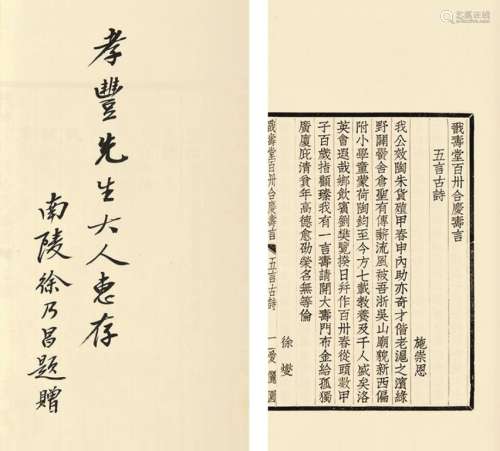 孝豐先生大人惠存
南陵徐乃昌題贈
戩壽堂百卅合慶壽言
五言古詩
施崇恩
我公效陶朱貨殖甲春申內助亦奇才偕老滬之濱綠
野闢黌舍倉聖有傳薪流風被吾浙吳山廟貌新西偏
附小學童蒙荷陶鈞至今方七載教養及千人盛矣洛
英會遐哉鄉飲賓劉樊覽揆日并作百卅春從頭數甲
子百歲指顧臻我有一言壽請開大壽門布金給孤獨
廣廈庇清貧年高德愈劭榮名無等倫
徐燮
戩壽堂百卅合慶壽言 五言古詩 一 愛儷園